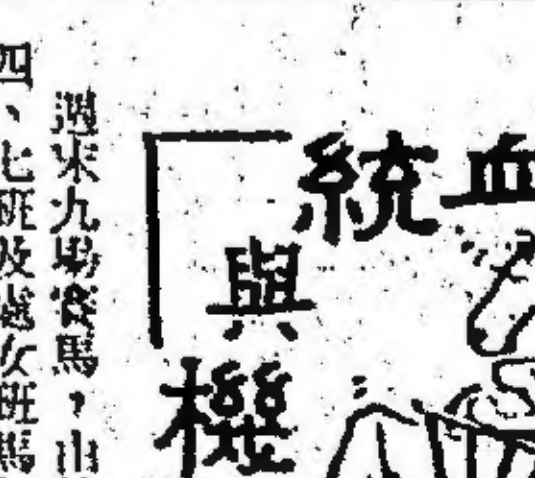 血統
與
機
週末九場賽馬，由
四、七班及處女班馬